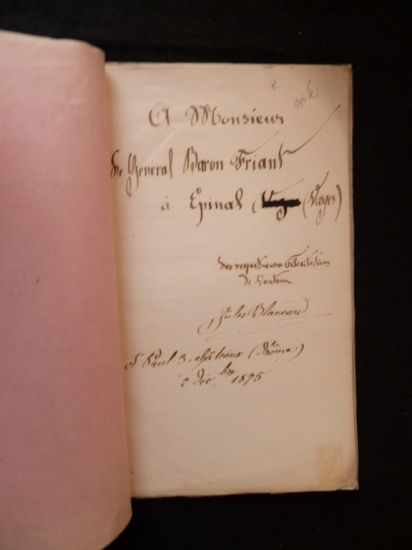 A Monsieur
Le Général Baron Friant
à Epinal (Vosges)
Des respectueuses félicitations
de l'auteur
Jules Blancard
St Paul 3 châteaux (Drôme)
2 Déc bre 1895